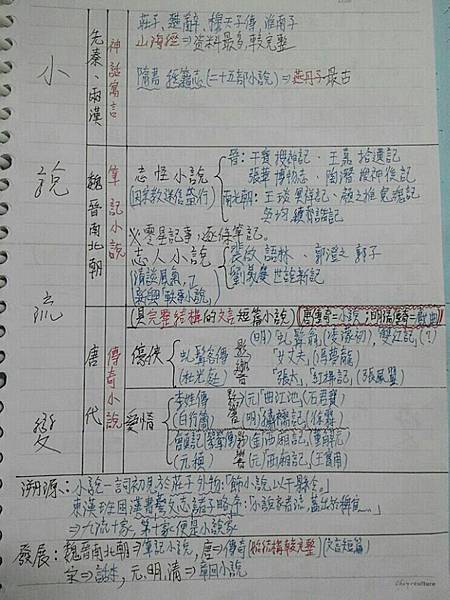 小說流變
先秦、兩漢
神話寓言
莊子、楚辭、穆天子傳、淮南子
山海經⇒資料最多,較完整
隋書 經籍志(二十五部小說)⇒燕丹子最古
魏晉南北朝
筆記小說
志怪小說
(因宗教迷信盛行)
晉:干寶 搜神記、王嘉 拾遺記
張華 博物志、陶潛 搜神後記
南北朝:王琰 冥祥記、顏之推 冤魂記
吳均 續齊諧記
※零星記事,逐條筆記。
志人小說
(清談風氣,
新興軼事小說)
裴啟 語林、郭澄之 郭子
劉義慶 世說新語
唐代
傳奇小說
(具完整結構的文言短篇小說)(唐傳奇=小說;明清傳奇=戲曲)
豪俠
虬髯客傳
(杜光庭)
影響
(明)虬髯翁(凌濛初),雙紅記(?)
女丈夫(馮夢龍)
張太 紅拂記(張鳳翼)
愛情
李娃傳
(白行簡)
影響
(元)曲江池(石君寶)
(明)繡襦記(徐霖)
會真記(鶯鶯傳)
(元稹)
影響
(金)西廂記(董解元)
(元)西廂記(王實甫)
溯源:小說一詞初見於莊子外物:「飾小說以干縣令。」
東漢班固漢書藝文志諸子略序:「小說家者流,蓋出於稗官…」
⇒九流十家,第十家便是小說家
發展:魏晉南北朝⇒筆記小說,唐⇒傳奇(始結構較完整)(文言短篇)
宋⇒話本,元、明、清⇒章回小說